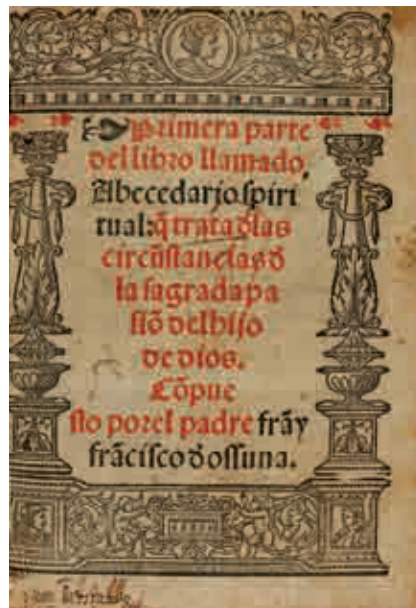 Primera parte
del libro llamado,
Abecedario spiri
tual: q̃ trata d̃las
circũstancias d̃
la sagrada pa
siõ del hijo
de dios.
Cõpue
sto por el padre frãy
frãcisco d̃ ossuna.